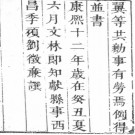 翼等共勷事有勞焉例得
並書
康熙十二年歲在癸丑夏
六月文林郎知獻縣事西
昌李碩劉徵廉譔